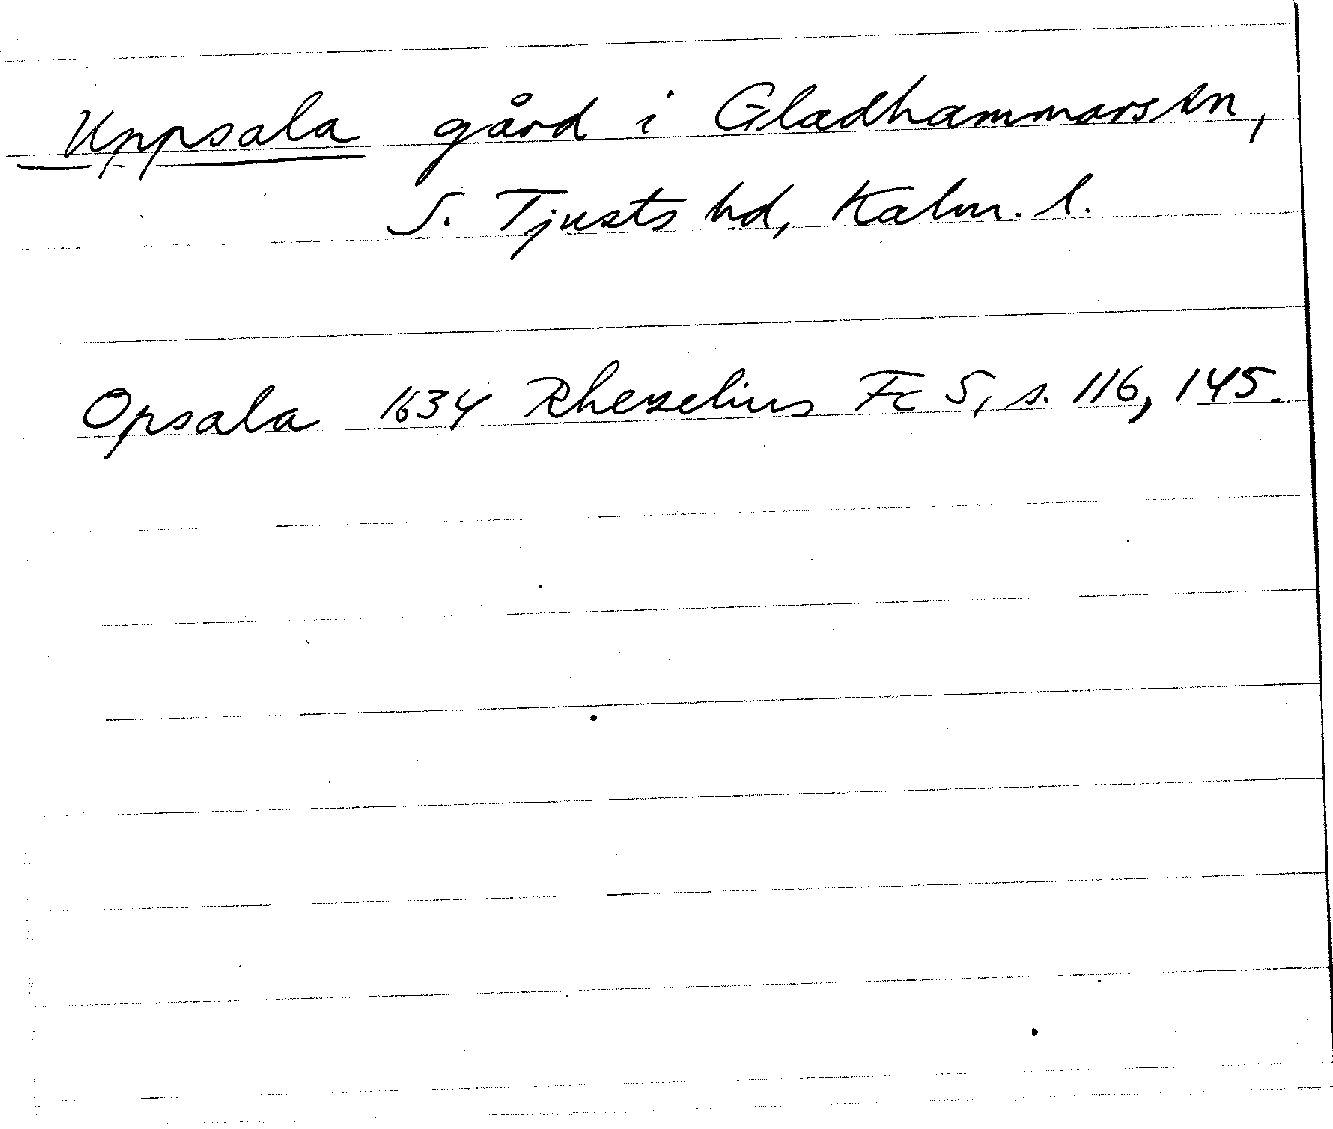 Uppsala gård i Gladhammars sn,
S. Tjusts hd, Kalm. l.
Opsala 1634 Rhezelius Fc 5, s. 116, 145.